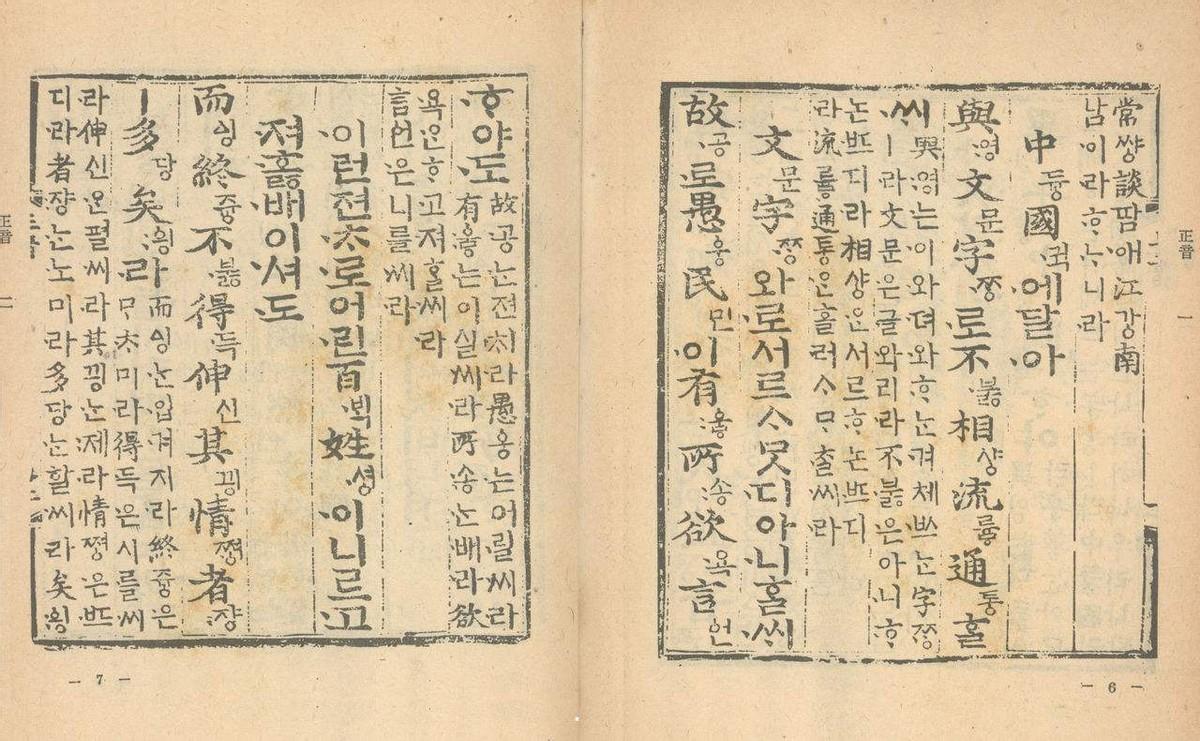 常썅談땀애江강南
남이라ᄒᆞᄂᆞ니라
中듀ᇰ國귁에달아
與영文문字ᄍᆞᆼ로不부ᇙ相샤ᇰ流류ᇢ通토ᇰᄒᆞᆯ
ᄊᆡ
與영는이와뎌와ᄒᆞᄂᆞᆫ겨체ᄡᅳ는字ᄍᆞᆼ
ㅣ라文문은글와리라不부ᇙ은아니ᄒᆞ
논ᄠᅳ디라相샤ᇰ은서르ᄒᆞ논ᄠᅳ디
라流류ᇢ通토ᇰ은흘러ᄉᆞᄆᆞᄎᆞᆯ씨라
文문字ᄍᆞᆼ와로서르ᄉᆞᄆᆞᆺ디아니ᄒᆞᆯᄊᆡ
故공로愚ᅌᅮᆼ民민이有우ᇢ所송欲욕言언
正音 一
— 6 —
ᄒᆞ야도
故공ᄂᆞᆫ젼ᄎᆡ라愚ᅌᅮᆼ는어릴씨라
有우ᇢ는이실씨라所송ᄂᆞᆫ배라欲
욕은ᄒᆞ고져ᄒᆞᆯ씨라
言언은니를씨라
이런젼ᄎᆞ로어린百ᄇᆡᆨ姓셔ᇰ이니르고
져호ᇙ배이셔도
而ᅀᅵᆼ終쥬ᇰ不부ᇙ得득伸신其끵情쪄ᇰ者쟝
ㅣ多당矣ᅌᅴᆼ라
而ᅀᅵᆼᄂᆞᆫ입겨지라終쥬ᇰ은
ᄆᆞᄎᆞ미라得득은시를씨
라伸신은펼씨라其끵ᄂᆞᆫ제라情쪄ᇰ은ᄠᅳ
디라者쟝ᄂᆞᆫ노미라多당ᄂᆞᆫ할씨라矣ᅌᅴᆼ
正音 一
— 7 —